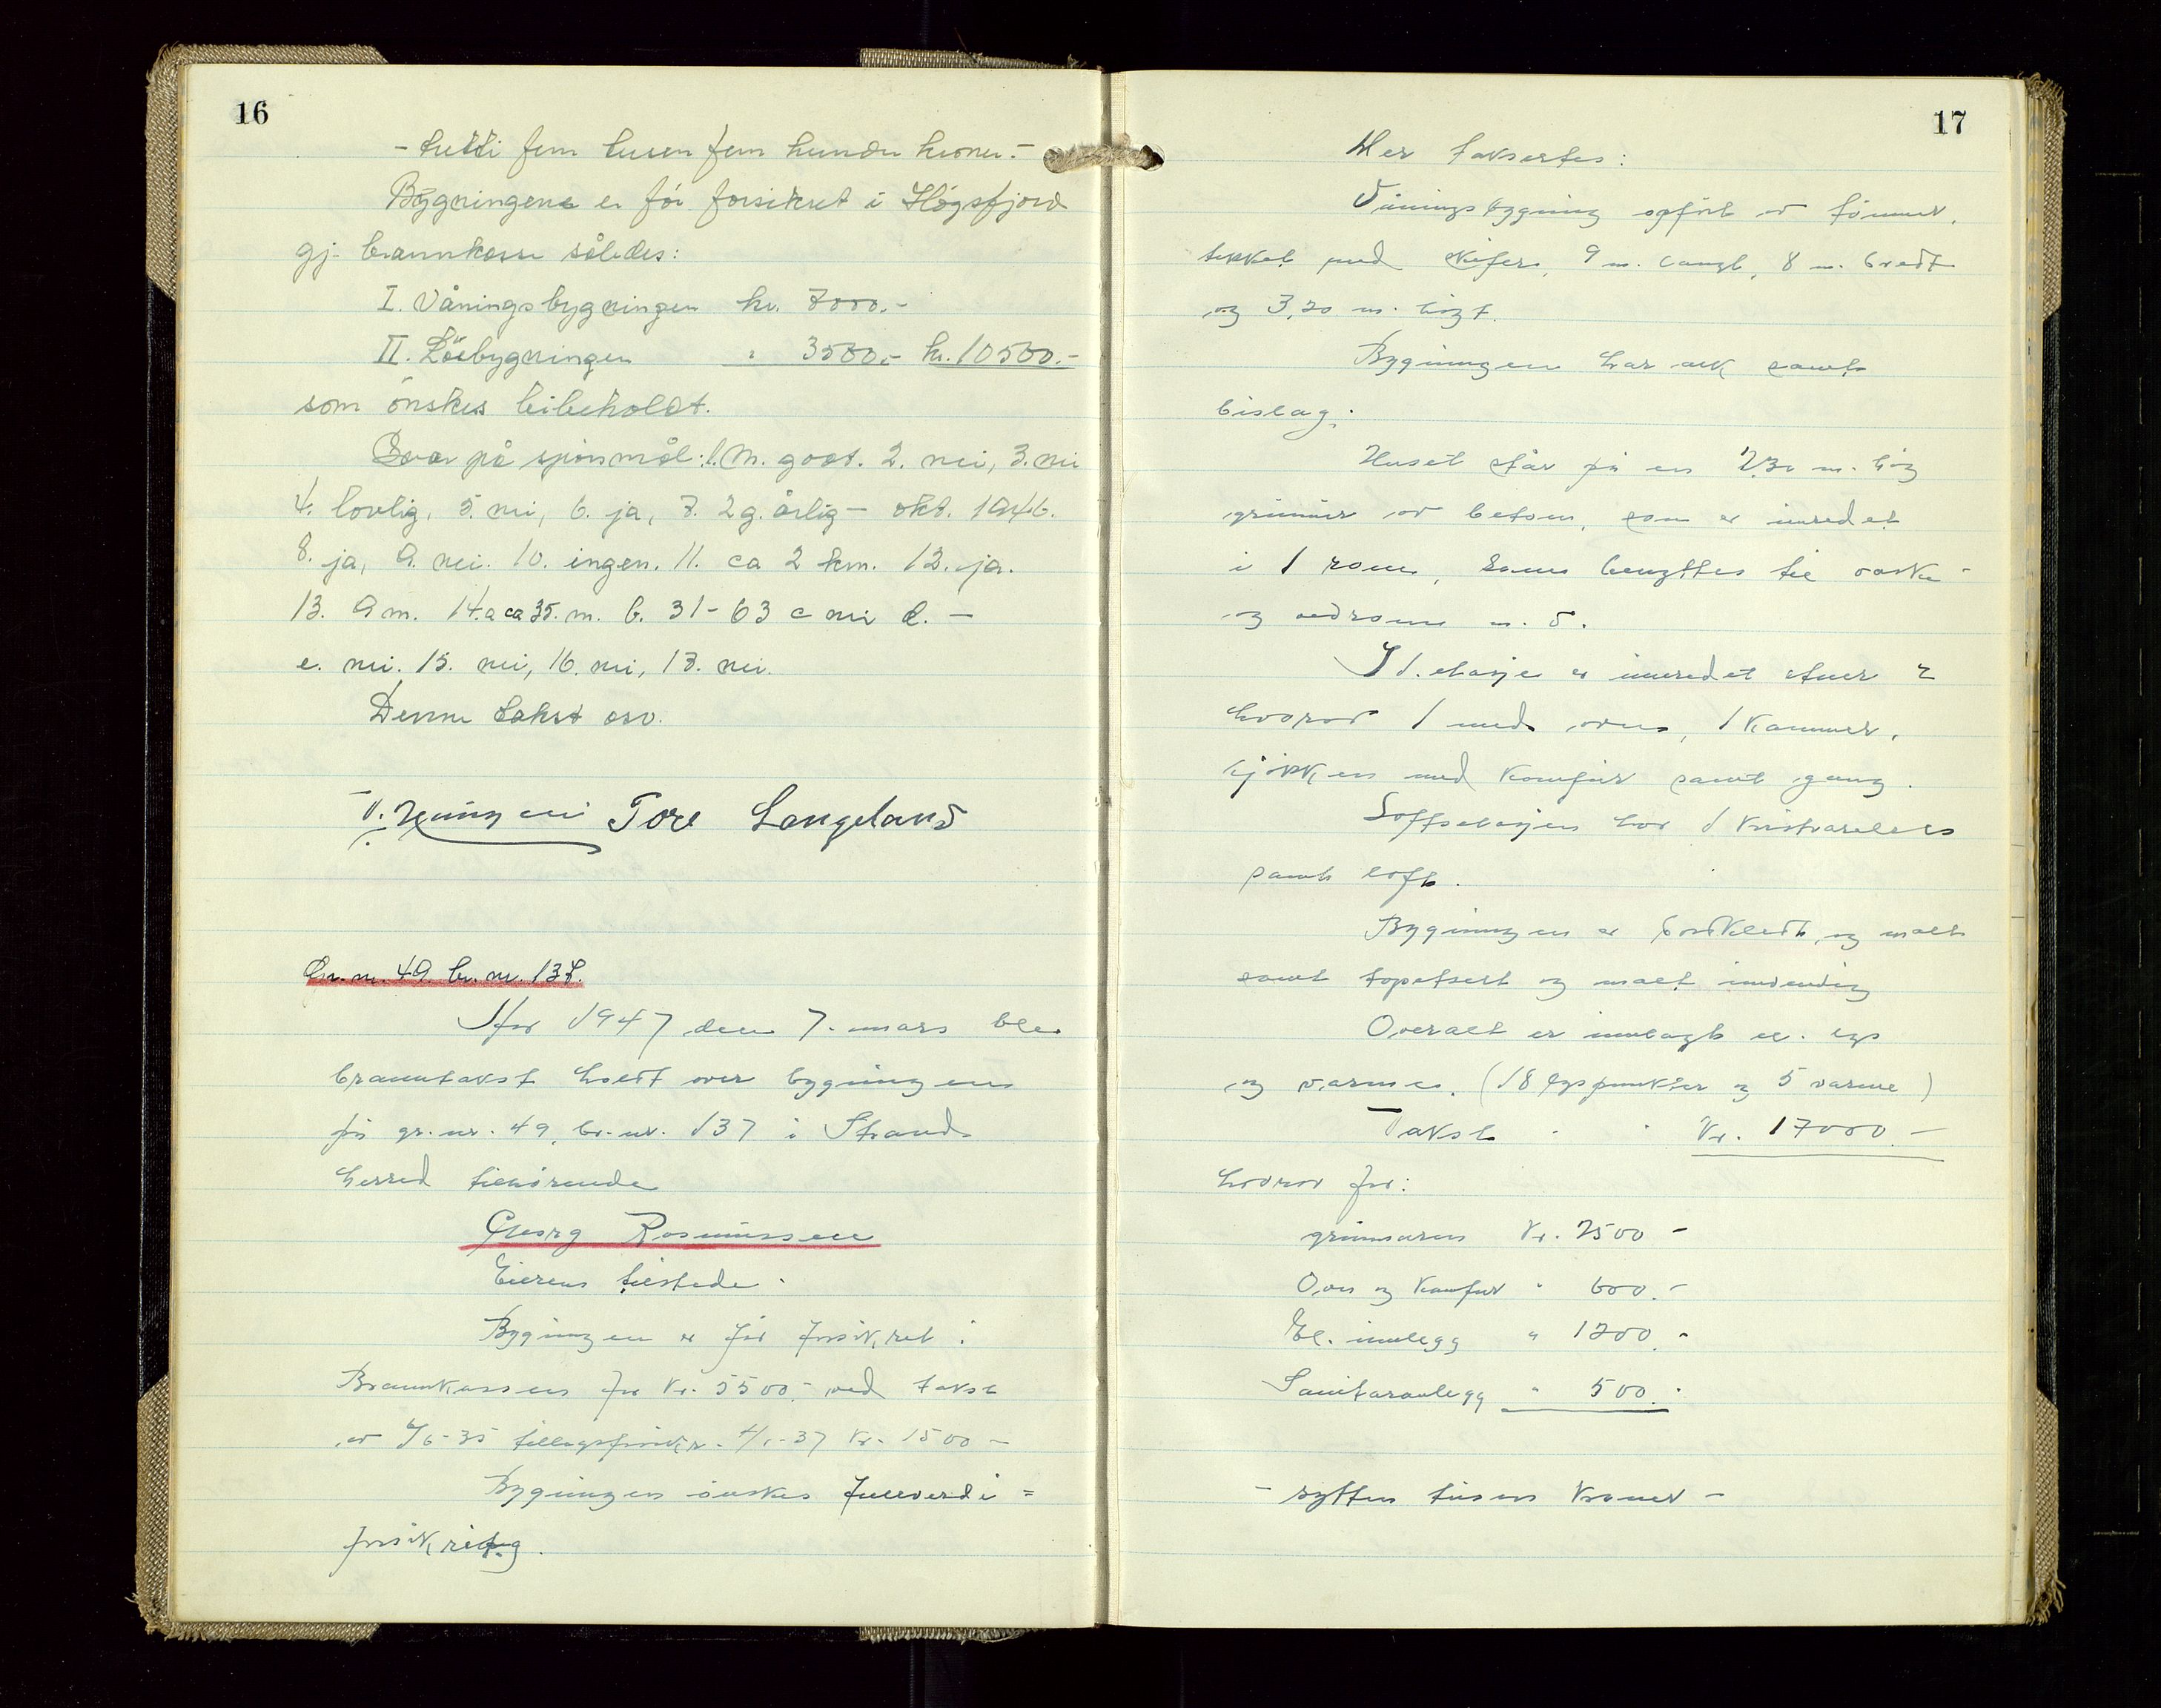 16
- tretti fem tusen fem hundre kroner.-
Bygningene er før forsikret i Høgsfjord
gj. brannkasse således:
I. Våningsbygningen kr. 7000.-
II. Löebygningen " 3500.- kr. 10500.-
som ønskes bibeholdt.
Svar på spørsmål: 1. M. godt. 2. nei, 3. nei
4. lovlig, 5. nei, 6. ja, 7. 2 g. årlig - okt. 1946.
8. ja, 9. nei. 10. ingen. 11. ca 2 km. 12. ja.
13. 9 m. 14. a ca 35. m. b. 31-63 c nei d. -
e. nei. 15. nei, 16. nei, 17. nei.
Denne takst osv.
Tore Langeland
Gr. nr. 49. br. nr. 137.
År 1947 den 7. mars ble
branntakst holdt over bygningen
på gr. nr. 49, br. nr. 137 i Strand
herred tilhørende
Georg Rasmussen
Eieren tilstede.
Bygningen er før forsikret i
Brannkassen for kr. 5500.- ved takst
av 7/6-35 4/1-37 kr. 1500 -
Bygningen ønskes fullverdi =
forsikring.
17
Her takseres:
Våningsbygning opført av tømmer,
tekket med skifer, 9 m. langt, 8 m. bredt
og 3,20 m. høgt.
Bygningen har ark samt
bislag.
Huset står på en 2,30 m. høg
grunnmur av betong, som er innredet
i 1 rom, som benyttes til vaske-
og vedrom m. v.
I 1. etasje er innredet stuer 2
hvorav 1 med ovn, 1 kammer,
kjøkken med komfyr samt gang.
Loftsetasjen har 1 kvistværelers
samt loft.
Bygningen er bordkledt og malt
samt tapetsert og malt innvendig
Overalt er innlagt el. lys
og varme. (18 lyspunkter og 5 varme)
Takst kr. 17000.-
hvorav for:
grunnmuren kr. 2500 -
Ovn og komfyr " 600.-
El. innlegg " 1200.-
Sanitæranlegg " 500.-
- sytten tusen kroner -